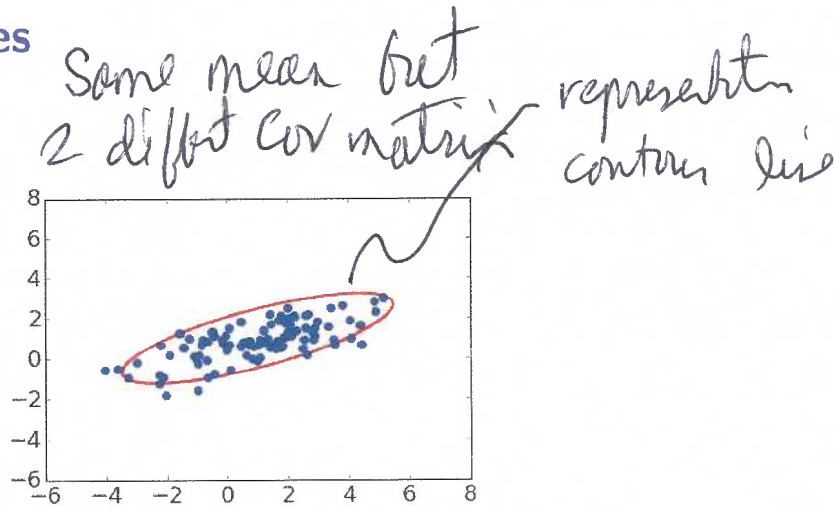 es
Same mean but
2 diffet cov matrix
representtn
contour line
8
6
4
2
0
−2
−4
−6
−6 −4 −2 0 2 4 6 8